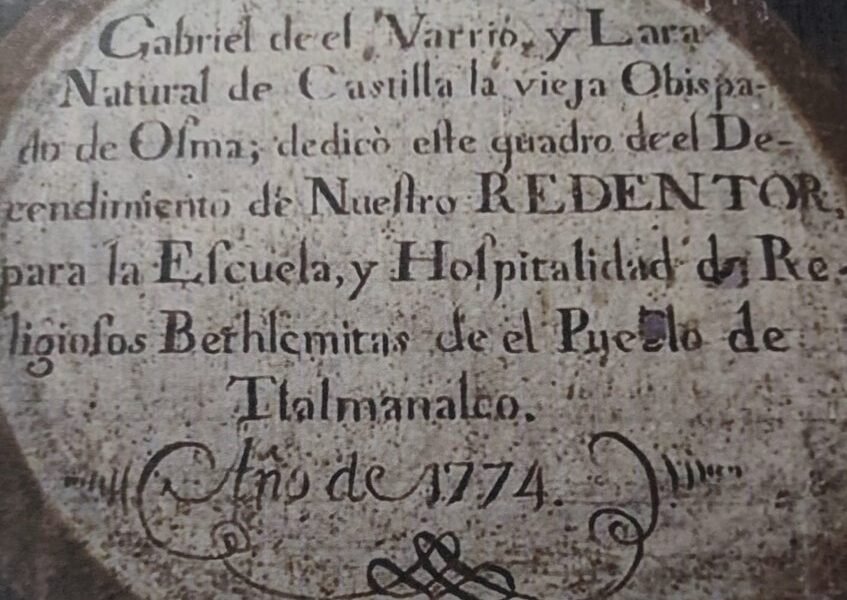 Gabriel de el Varrio, y Lara
Natural de Castilla la vieja Obispa-
do de Oſma; dedicò eſte quadro de el De-
cendimiento de Nueſtro REDENTOR,
para la Eſcuela, y Hoſpitalidad de Re-
ligioſos Bethlemitas de el Pueblo de
Tlalmanalco.
Año de 1774.